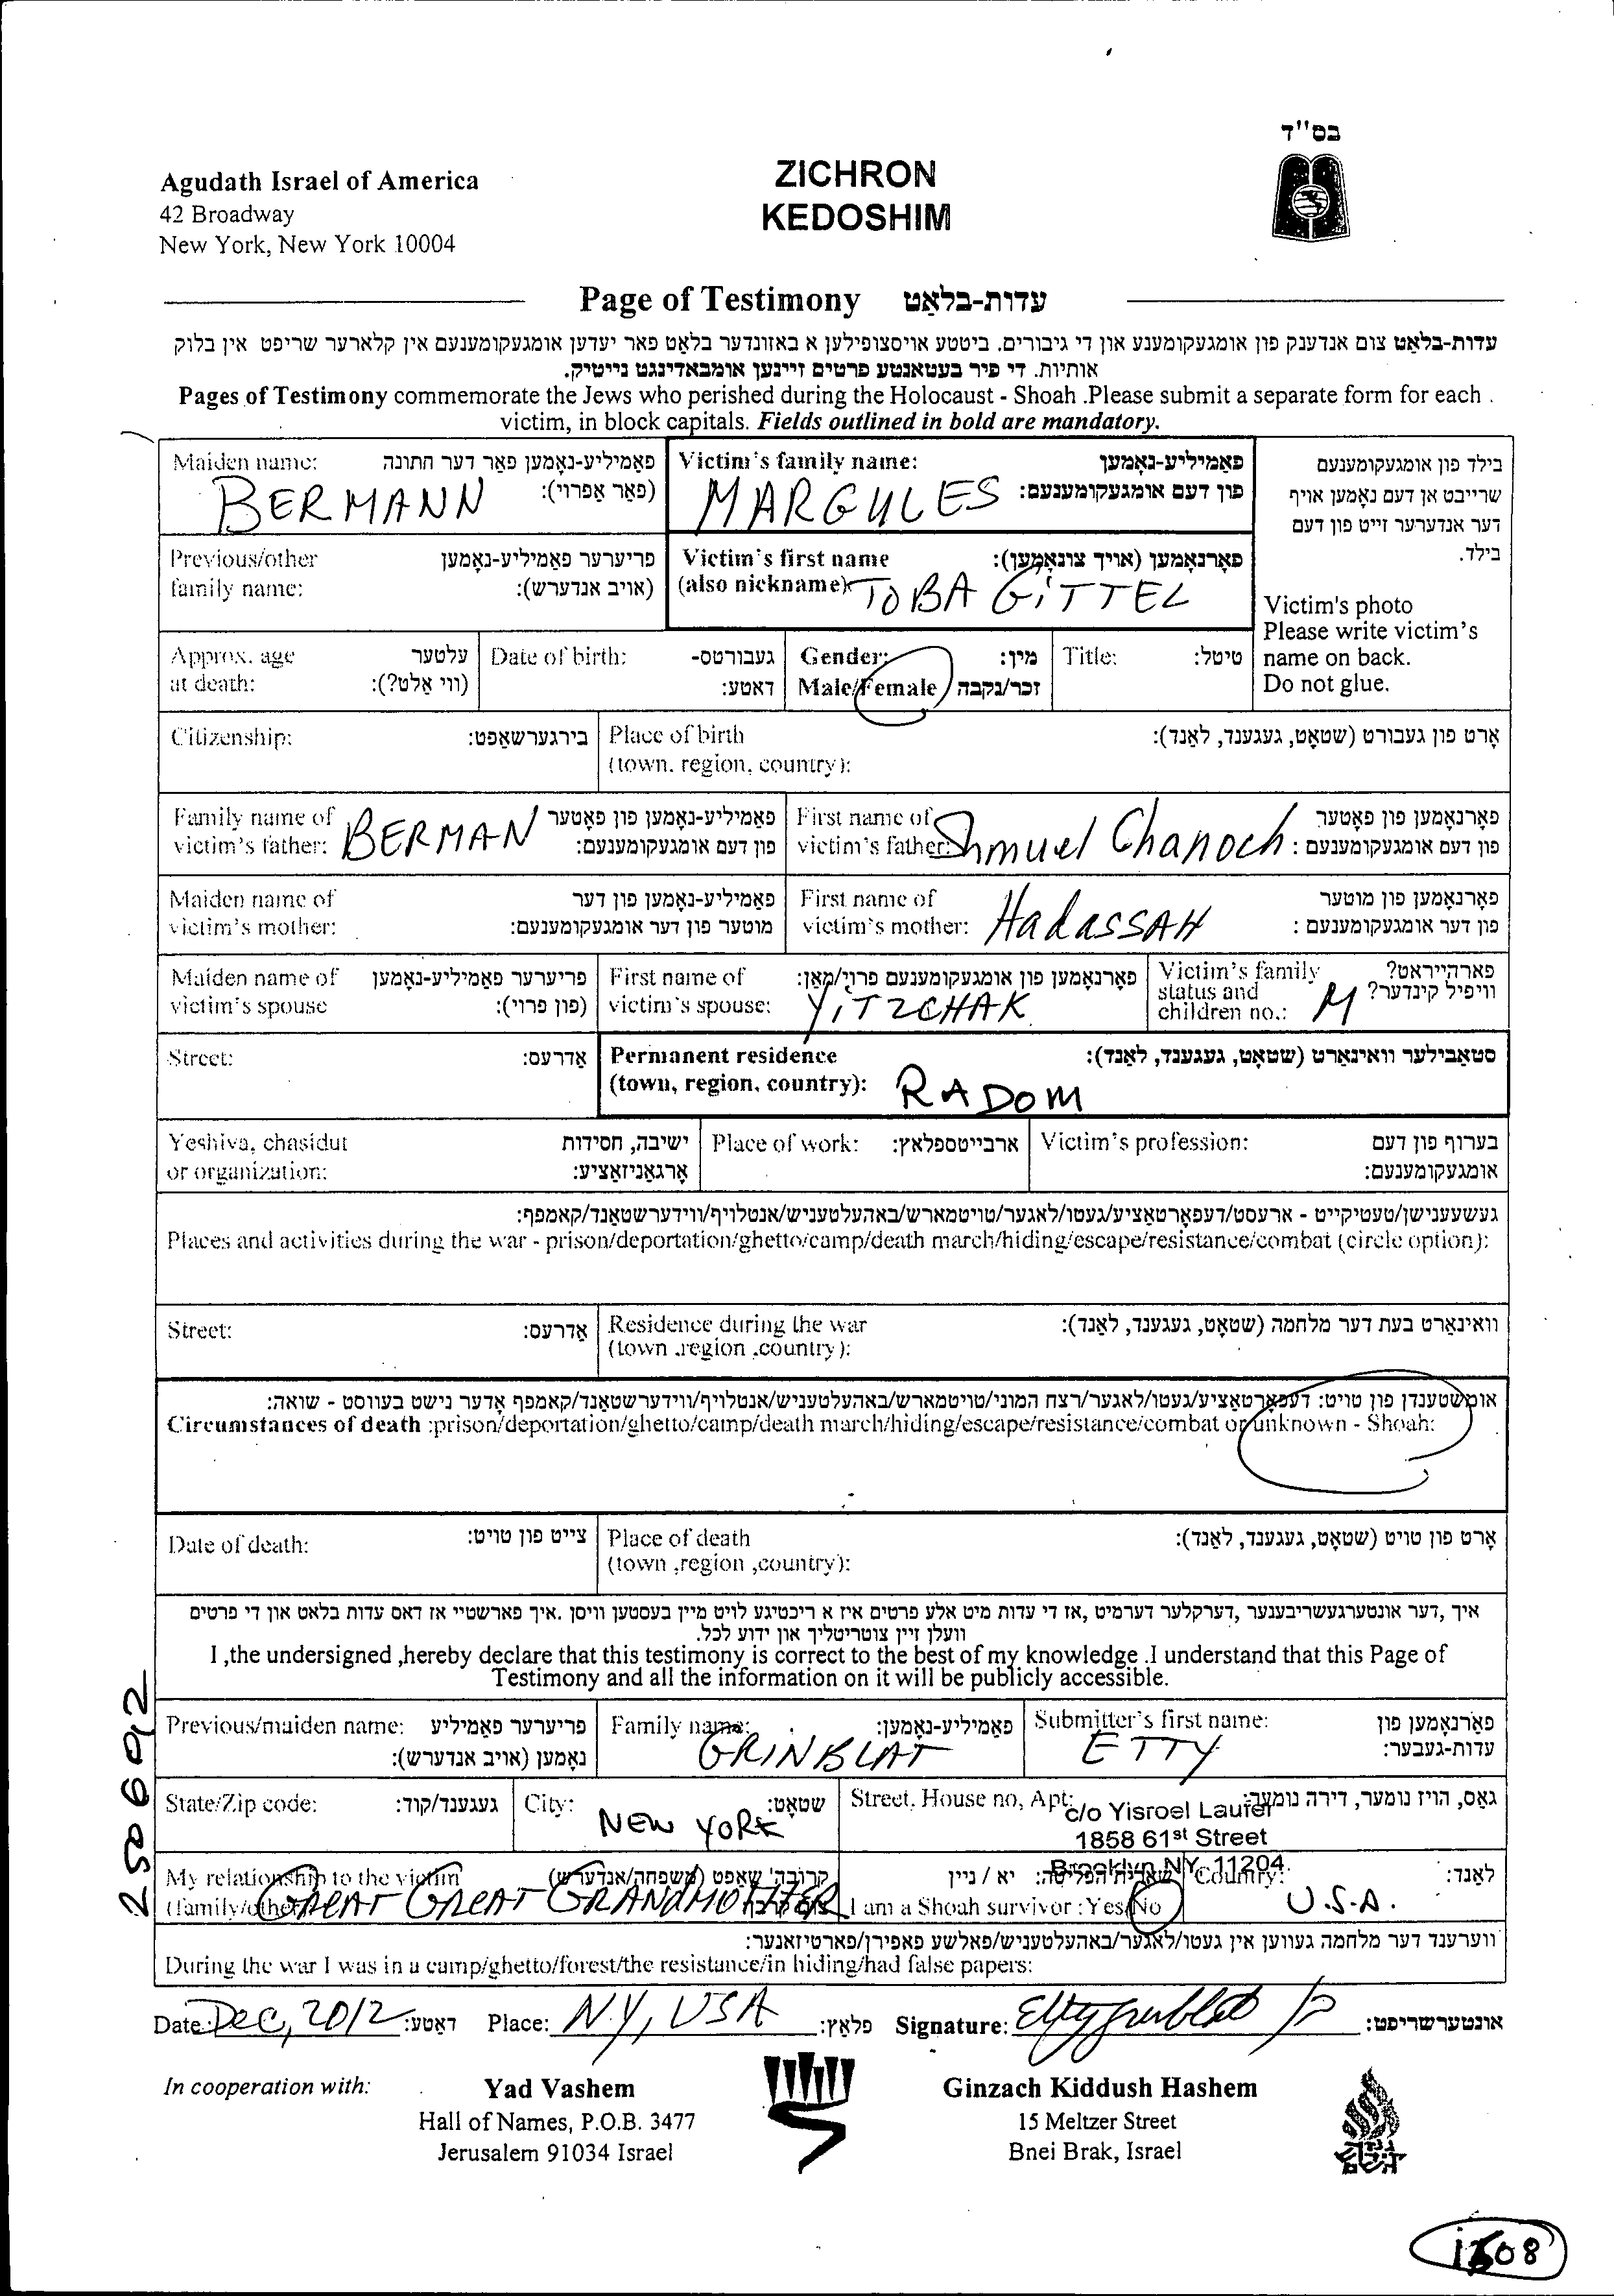 בס"ד
Agudath Israel of America
42 Broadway
New York, New York 10004
ZICHRON
KEDOSHIM
Page of Testimony עדות-בלאַט
עדות-בלאַט צום אנדענק פון אומגעקומענע און די גיבורים. ביטטע אויסצופילען א באזונדער בלאט פאר יעדען אומגעקומענעם אין קלארער שריפט אין בלוק
אותיות. די פיר בעטאנטע פרטים זיינען אומבאדינגט נייטיק.
Pages of Testimony commemorate the Jews who perished during the Holocaust - Shoah .Please submit a separate form for each .
victim, in block capitals. Fields outlined in bold are mandatory.
Maiden name: פאַמיליע-נאָמען פאר דער חתונה
(פאר אפרוי):
BERMANN
Victim's family name: פאַמיליע-נאָמען
פון דעם אומגעקומענעם:
MARGULES
בילד פון אומגעקומענעם
שרייבט אן דעם נאָמען אויף
דער אנדערער זייט פון דעם
בילד.
Victim's photo
Please write victim's
name on back.
Do not glue.
Previous/other פריערער פאַמיליע-נאָמען
family name: (אויב אנדערש):
Victim's first name פאָרנאָמען (אויך צונאָמען):
(also nickname) TOBA GITTEL
Approx. age עלטער
at death: (ווי אלט?):
Date of birth: געבורטס-
דאטע:
Gender: מין:
Male/Female זכר/נקבה
Title: טיטל:
Citizenship: בירגערשאַפט:
Place of birth אָרט פון געבורט (שטאָט, געגענד, לאַנד):
(town, region, country):
Family name of פאַמיליע-נאָמען פון פאָטער
victim's father: פון דעם אומגעקומענעם:
BERMAN
First name of פאָרנאָמען פון פאָטער
victim's father: פון דעם אומגעקומענעם :
Shmuel Chanoch
Maiden name of פאַמיליע-נאָמען פון דער
victim's mother: מוטער פון דער אומגעקומענעם:
First name of פאָרנאָמען פון מוטער
victim's mother: פון דער אומגעקומענעם :
HadASSAH
Maiden name of פריערער פאַמיליע-נאָמען
victim's spouse (פון פרוי):
First name of פאָרנאָמען פון אומגעקומענעם פרוי/מאַן:
victim's spouse: YITZCHAK
Victim's family פארהייראט?
status and וויפיל קינדער?
children no.: M
Street: אַדרעס:
Permanent residence סטאַבילער וואינאָרט (שטאָט, געגענד, לאַנד):
(town, region, country): RADOM
Yeshiva, chasidut ישיבה, חסידות
or organization: אָרגאַניזאַציע:
Place of work: ארבייטספלאץ:
Victim's profession: בערוף פון דעם
אומגעקומענעם:
געשעענישן/טעטיקייט - ארעסט/דעפאָרטאַציע/געטו/לאגער/טויטמארש/באהעלטעניש/אנטלויף/ווידערשטאַנד/קאמפף:
Places and activities during the war - prison/deportation/ghetto/camp/death march/hiding/escape/resistance/combat (circle option):
Street: אַדרעס:
Residence during the war וואינאָרט בעת דער מלחמה (שטאָט, געגענד, לאַנד):
(town .region .country):
אומשטענדן פון טויט: דעפאָרטאַציע/געטו/לאגער/רצח המוני/טויטמארש/באהעלטעניש/אנטלויף/ווידערשטאַנד/קאמפף אָדער נישט בעווסט - שואה:
Circumstances of death :prison/deportation/ghetto/camp/death march/hiding/escape/resistance/combat or unknown - Shoah:
Date of death: צייט פון טויט:
Place of death אָרט פון טויט (שטאָט, געגענד, לאַנד):
(town ,region ,country):
איך ,דער אונטערגעשריבענער ,דערקלער דערמיט ,אז די עדות מיט אלע פרטים איז א ריכטיגע לויט מיין בעסטען וויסן .איך פארשטיי אז דאס עדות בלאט און די פרטים
וועלן זיין צוטריטליך און ידוע לכל.
I ,the undersigned ,hereby declare that this testimony is correct to the best of my knowledge .I understand that this Page of
Testimony and all the information on it will be publicly accessible.
250692
Previous/maiden name: פריערער פאַמיליע
נאָמען (אויב אנדערש):
Family name: פאַמיליע-נאָמען:
GRINBLAT
Submitter's first name: פאָרנאָמען פון
עדות-געבער:
ETTY
State/Zip code: געגענד/קוד:
City: שטאָט:
NEW YORK
Street, House no, Apt: גאַס, הויז נומער, דירה נומער:
c/o Yisroel Laufer
1858 61st Street
Brooklyn NY, 11204
My relationship to the victim קרובה' שאפט (משפחה/אנדערש)
(family/other) GREAT GREAT GRANDMOTHER
שארית הפליטה: יא / ניין
I am a Shoah survivor : Yes/No
Country: לאַנד:
U.S.A.
ווערענד דער מלחמה געווען אין געטו/לאגער/באהעלטעניש/פאלשע פאפירן/פארטיזאנער:
During the war I was in a camp/ghetto/forest/the resistance/in hiding/had false papers:
Date: Dec, 2012 דאטע: Place: N.Y, USA פלאץ: Signature: אונטערשריפט:
In cooperation with:
Yad Vashem
Hall of Names, P.O.B. 3477
Jerusalem 91034 Israel
Ginzach Kiddush Hashem
15 Meltzer Street
Bnei Brak, Israel